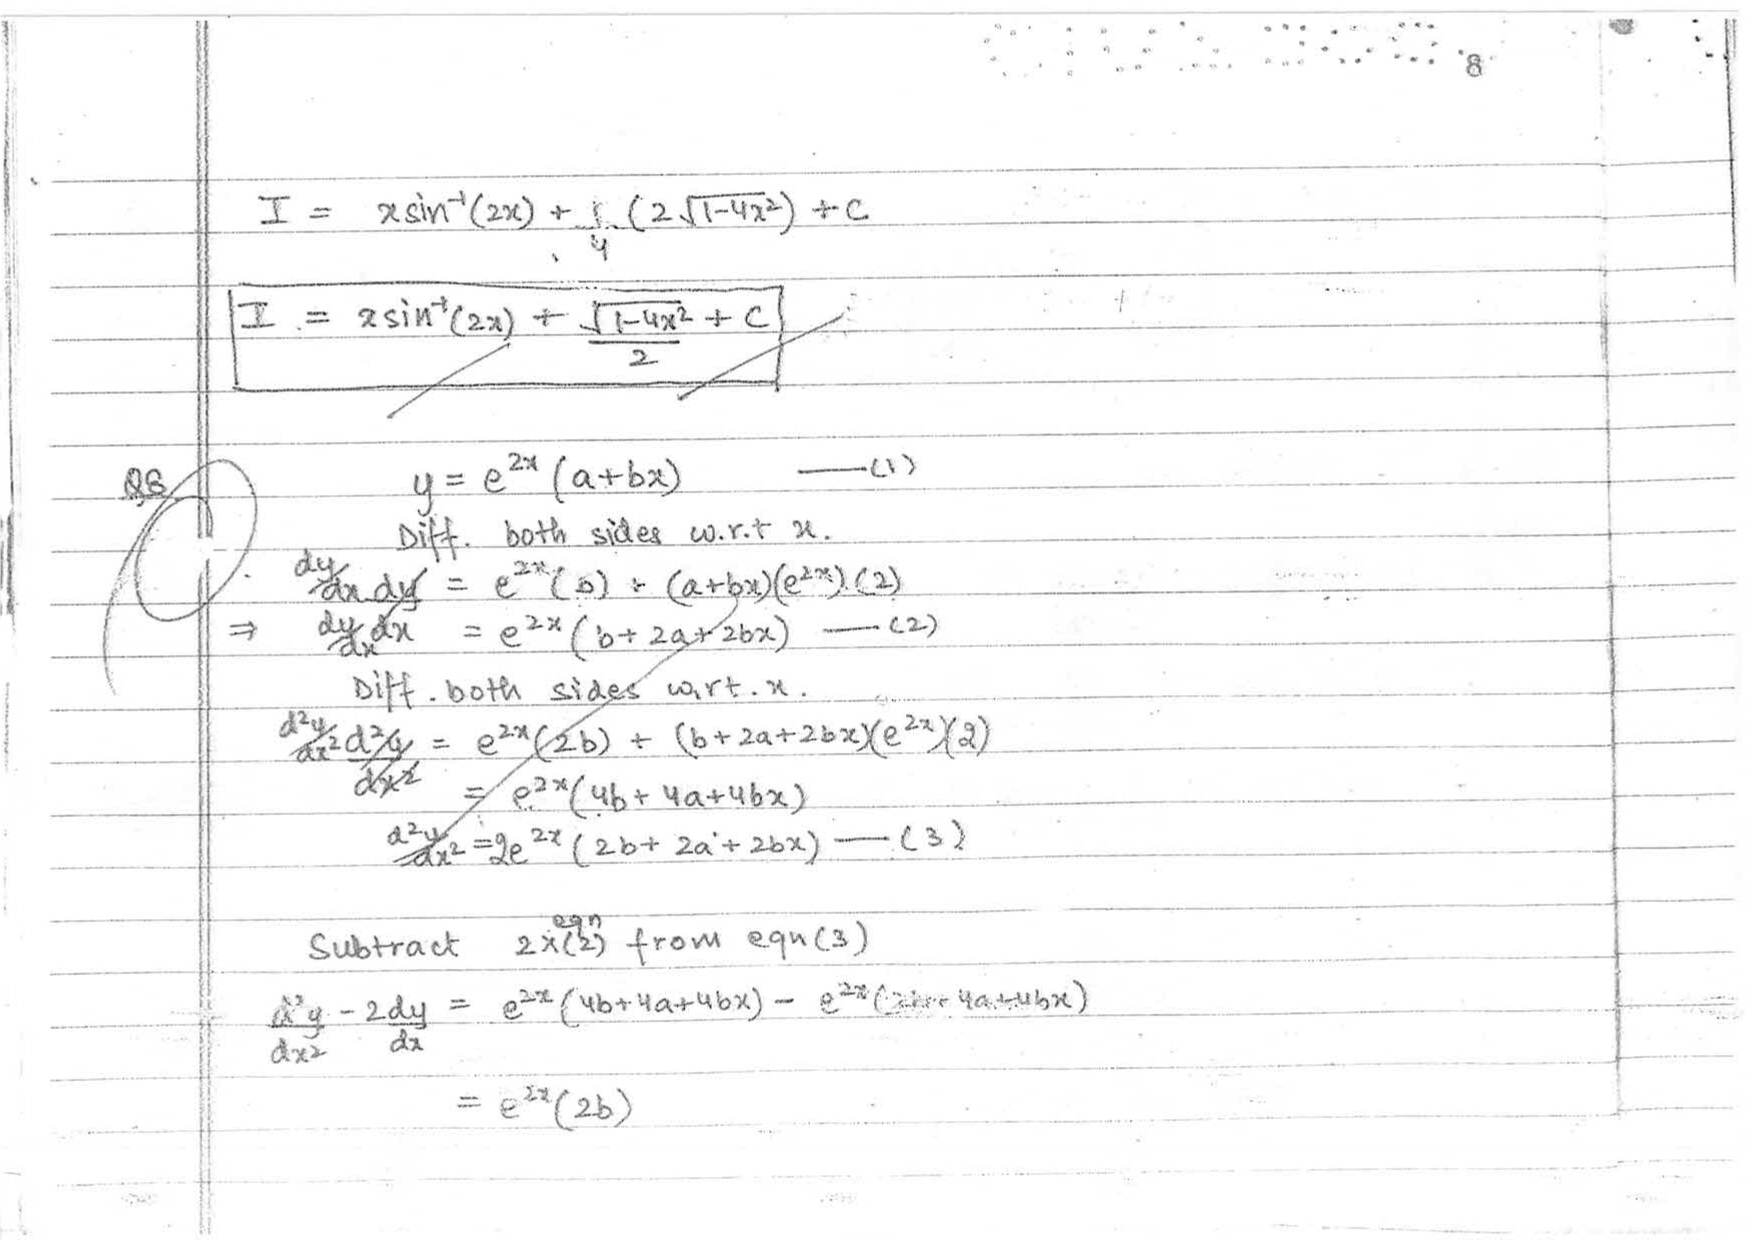 8
I = x sin⁻¹(2x) + 1/4 (2√(1-4x²)) + C
I = x sin⁻¹(2x) + √(1-4x²)/2 + C
Q8 y = e^{2x} (a+bx) —(1)
Diff. both sides w.r.t x.
dy/dx = e^{2x} (b) + (a+bx)(e^{2x}).(2)
⇒ dy/dx = e^{2x} (b+2a+2bx) —(2)
Diff. both sides w.r.t. x.
d²y/dx² = e^{2x}(2b) + (b+2a+2bx)(e^{2x})(2)
= e^{2x}(4b+4a+4bx)
d²y/dx² = 2e^{2x} (2b+2a+2bx) —(3)
Subtract 2×eqn(2) from eqn(3)
d²y/dx² - 2dy/dx = e^{2x}(4b+4a+4bx) - e^{2x}(2b+4a+4bx)
= e^{2x}(2b)